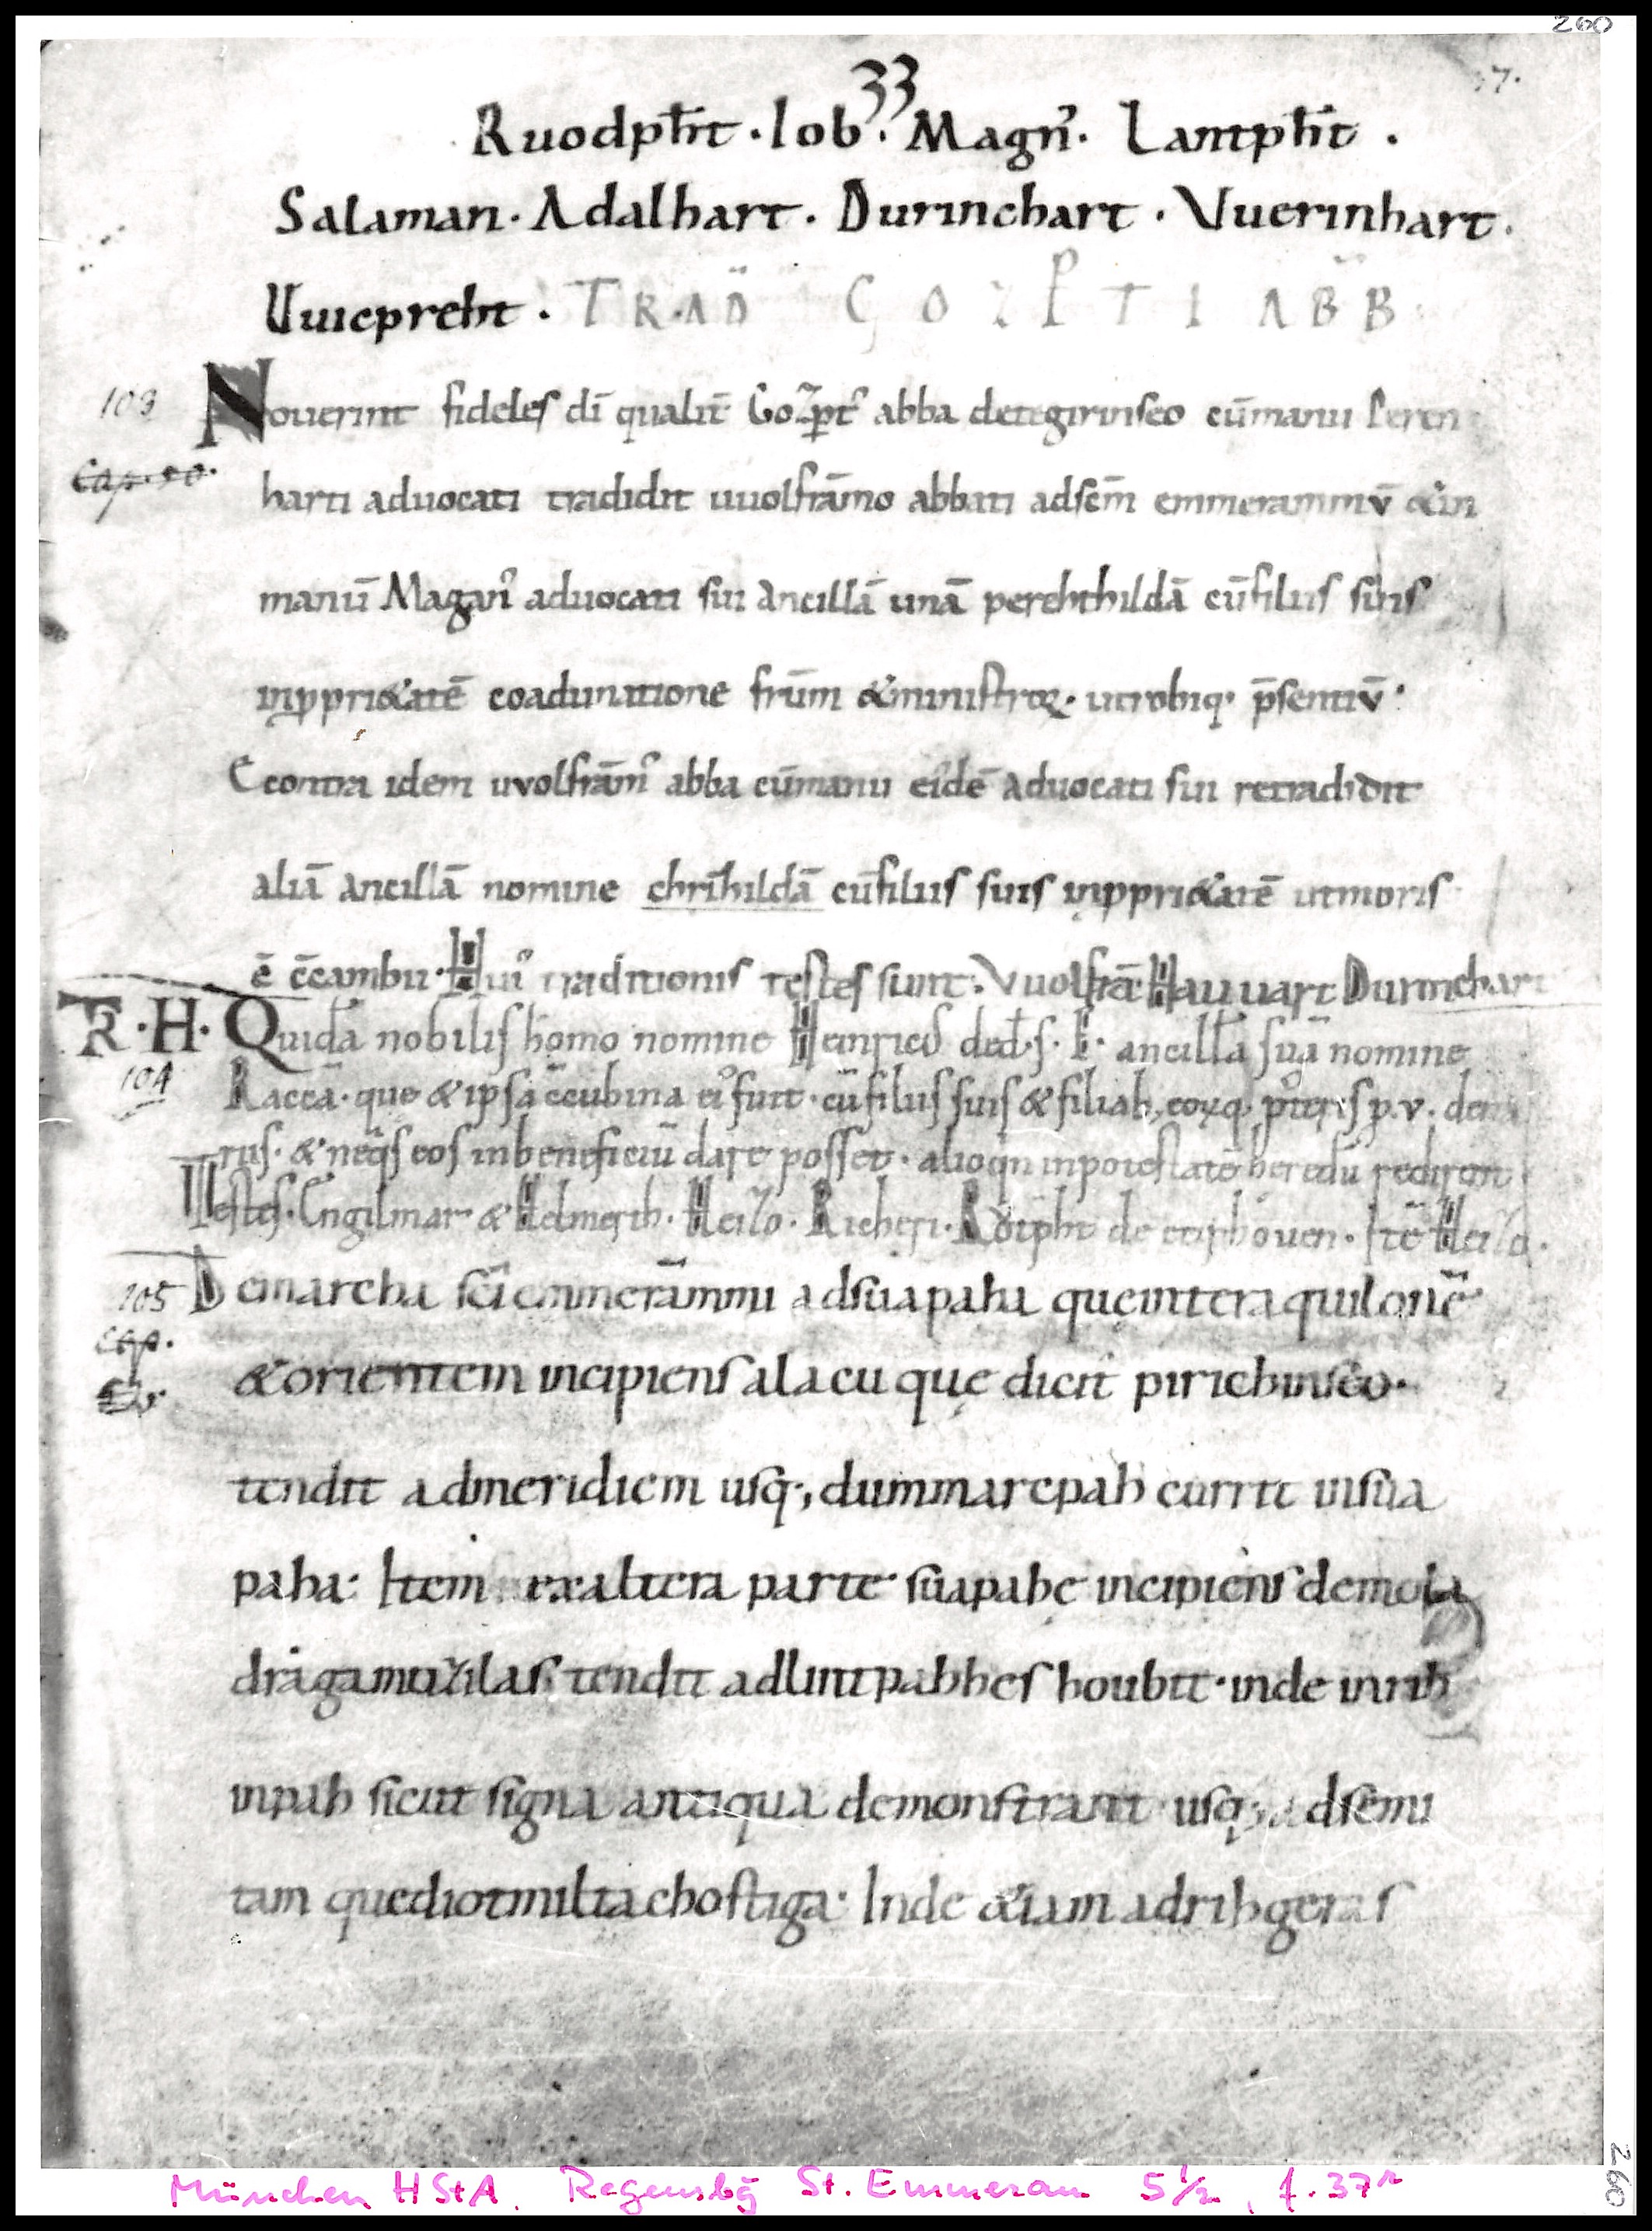 260
33
37.
Ruodpħt · Iob᷒. Magn᷒. Lantpħt .
Salaman . Adalhart . Durinchart . Vuerinhart .
Vuicpreht . TRAD̄ GOZP̄TI ABB̄
103 Nouerint fideles dī qualit̄ Gozp̄t᷒ abba detegirinseo cūmanu Peren
Cap. 80.
harti aduocati tradidit uuolfrām̄o abbati adsc̄m emmerammū &in
manū Magan᷒ aduocati sui ancillā unā perehthildā cūfiliis suis
inppri&atē coadunatione frūm &ministroꝝ. utrobiq· p̄sentiū·
Econtra idem uvolfrām᷒ abba cūmanu ei᷒dē aduocati sui retradidit
aliā ancillā nomine chrīhildā cūfiliis suis inppri&atē utmoris
ē c̄cambii· Hui᷒ traditionis testes sunt: Vuolfrā Hauuart Durinchart
T̄R · H · Quidā nobilis homo nomine Heinric᷒ ded̄ · s · E · ancillā suā nomine
104
Racc̄a · que & ipsa c̄cubina ei᷒ fuit · cū filiis suis & filiab, eoꝝq, p᷒teris p. v. dena
riis · & neq̄s eos inbeneficiū dare posset · alioq̄n inpotestatē heredū redirent
Testes. Engilmar & Helmerih · Heilo · Richeri · Rōtpht de houen · Itē Heilo ·
105 Demarcha sc̄i emmerāmmi adsuapaha quęintera quilonē
Cap.
&orientem incipiens alacu quę dicit̄ pirichinseo·
tendit admeridiem usq;, dummarcpah currit insua
paha: Item exaltera parte suapahę incipiens demola
dragamuzilas tendit adlintpahhes houbit · inde inrih
inpah sicut signa antiqua demonstrant usq; adsemi
tam quediotmiltachostiga: Inde &iam adrihgeras
München HStA. Regensbg St. Emmeram 5½, f. 37ʳ
260